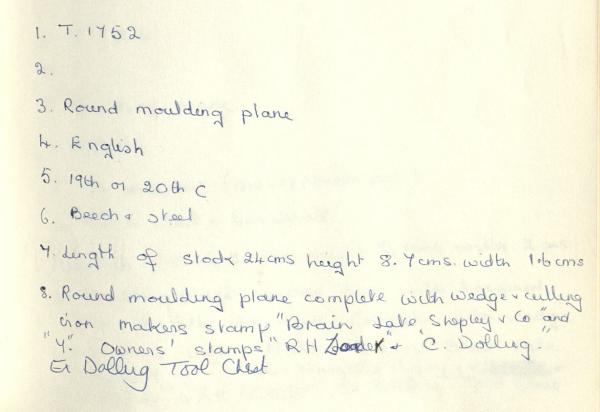 1. T. 1752
2.
3. Round moulding plane
4. English
5. 19th or 20th C
6. Beech & steel
7. Length of stock 24cms height 8.7cms. width 1.6cms
8. Round moulding plane complete with wedge & cutting
iron makers stamp "Brain late Shepley & Co" and
"7." Owners' stamps "R H & "C. Dollug."
Ex Dollug Tool Chest